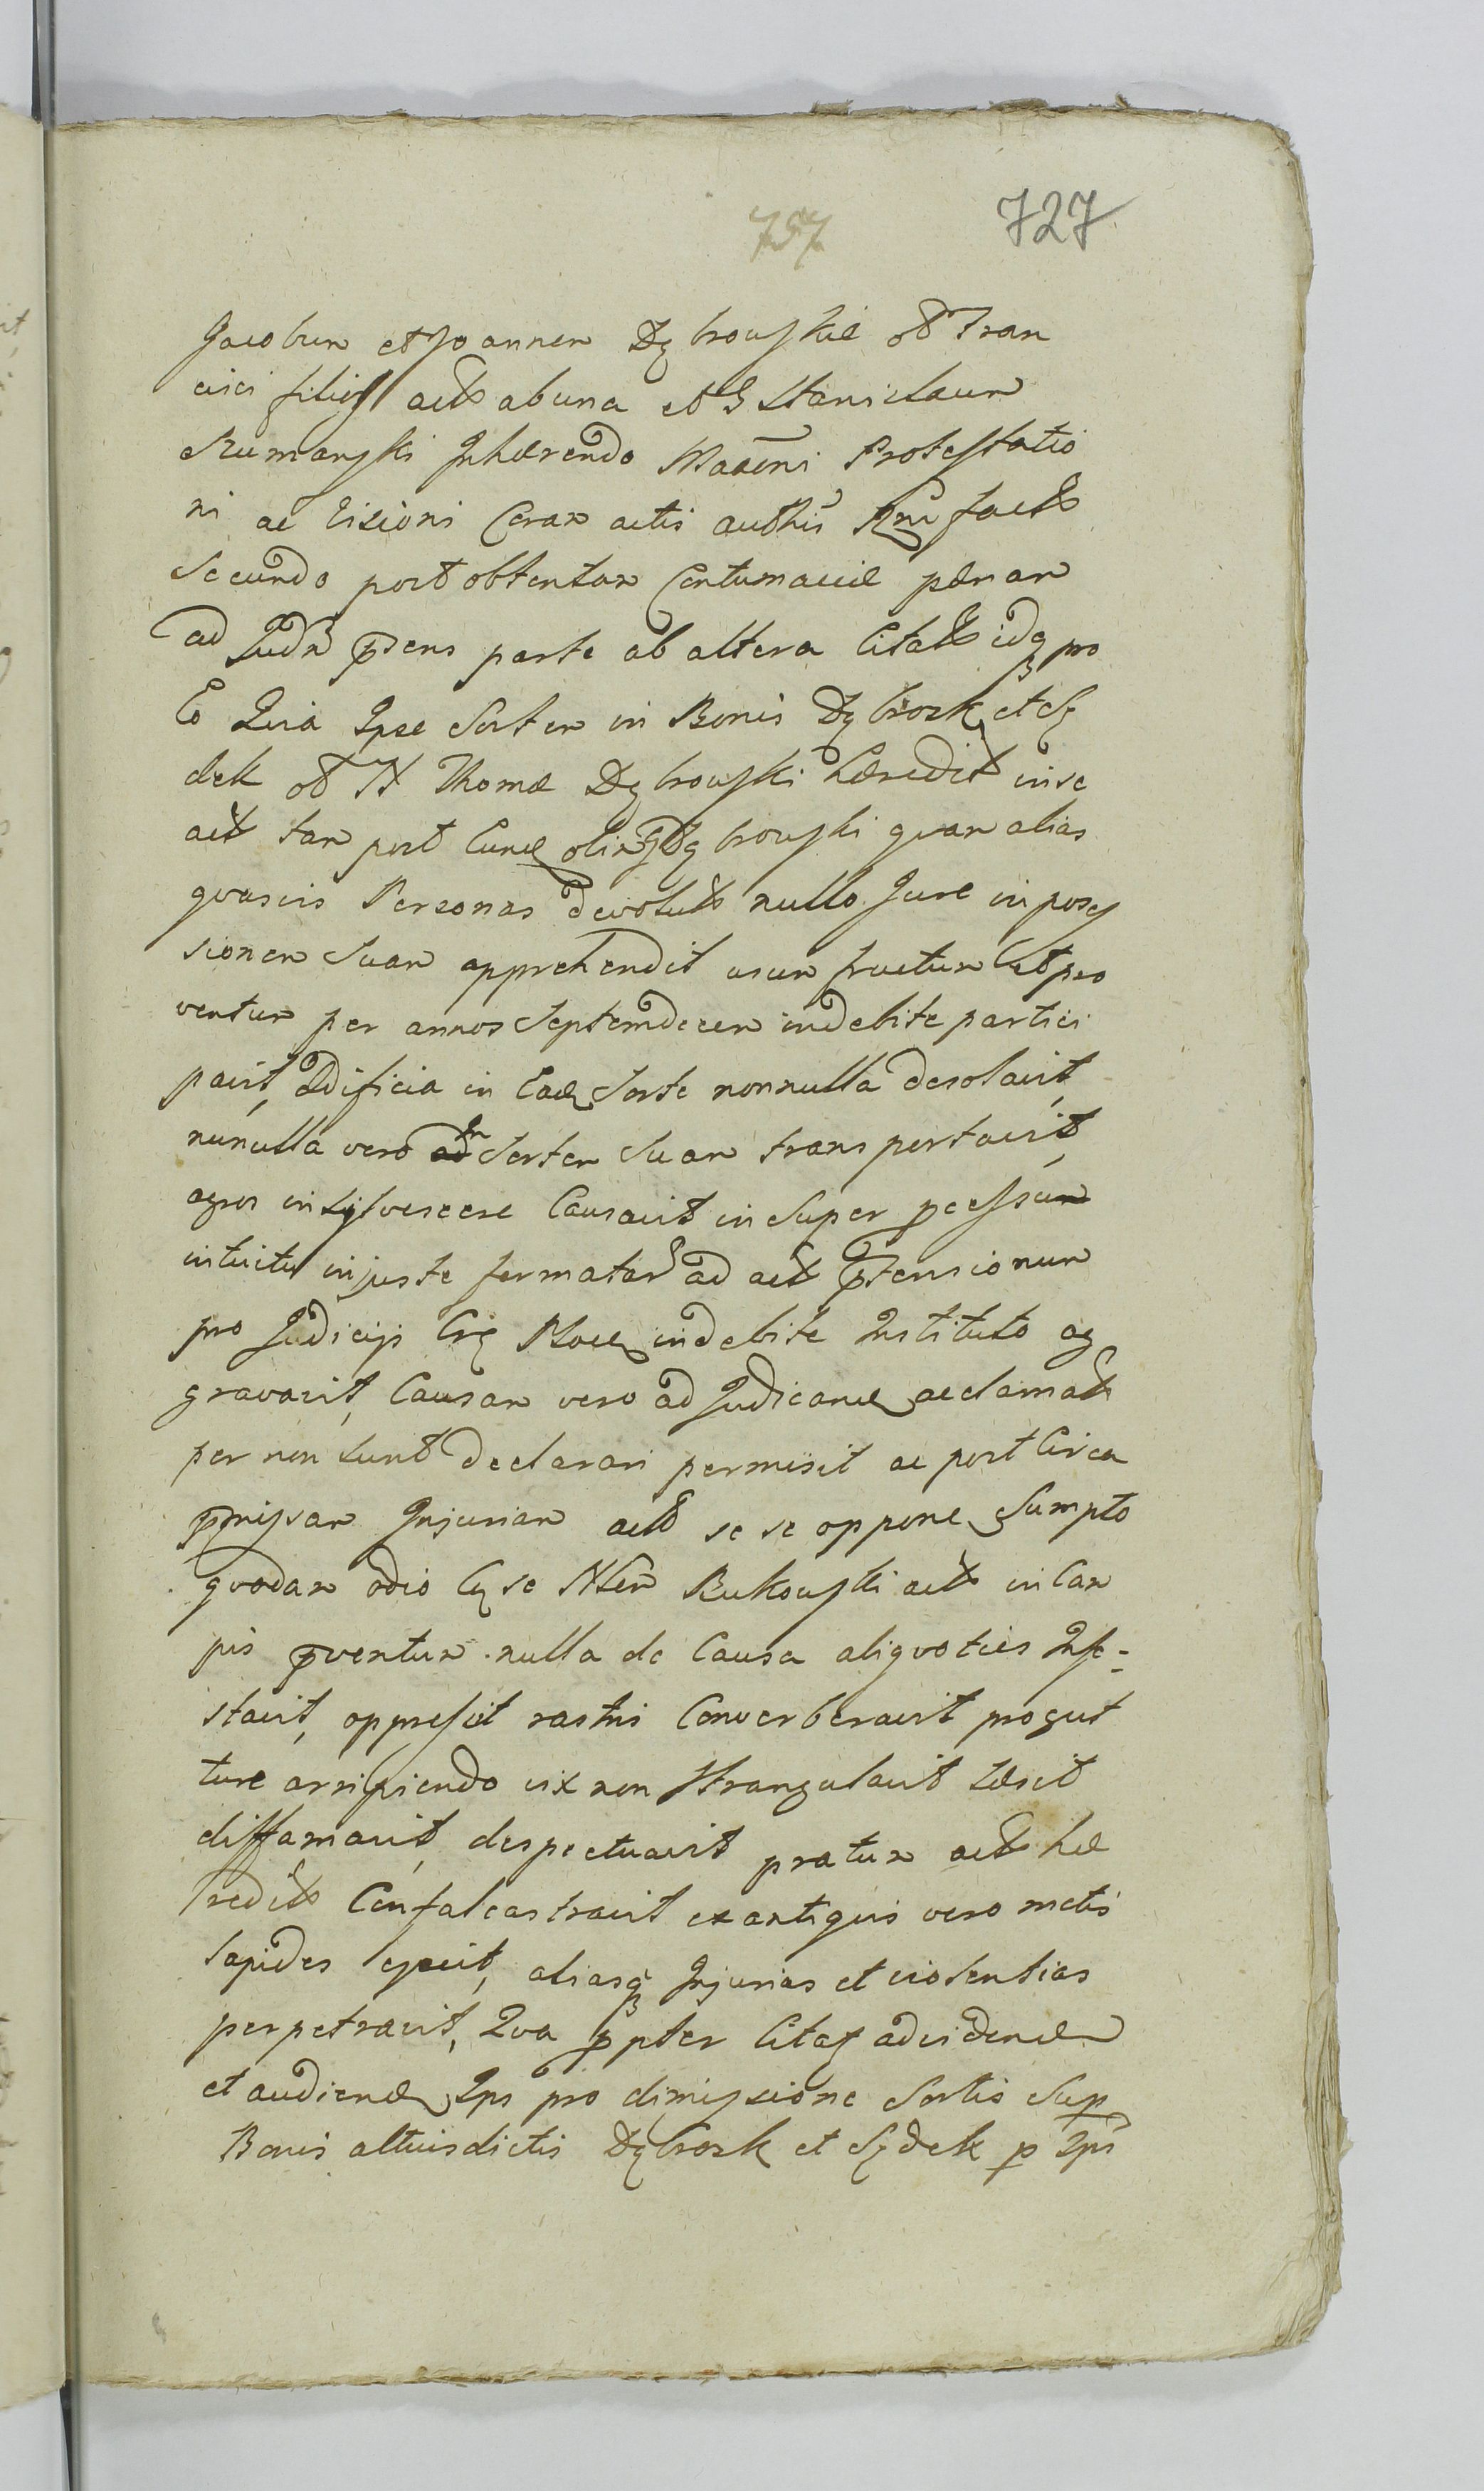 757 727
Jacobum et Joannem Dąbrowskie olim Fran
cisci filios actores ab una et G Stanislaum
Rumanski Inhærendo Manifni Protestatio
ni ac Visioni Coram actis authen factæ
Secundo post obtentam Contumaciæ pænam
ad Judm præsens parte ab altera Citatum idq pro
Eo Quia Ipse Sortem in Bonis Dąbrozk et Sę
dek olim N Thomæ Dąbrowski hæredit in se
act tam post Eund olim G Dąbrowski quam alias
quasvis Personas devolut nullo Jure in poss
sionem Suam apprehendit usum fructum et pro
ventum per annos Septemdecem indebite partici
pavit, ædificia in Ead Sorte nonnulla desolavit,
nunulla vero ad in Sortem Suam transportavit,
agros insylvescere Causavit in Super pcessum
intuitu injuste formatar ad act prtensionum
pro Judicijs Crg indebite Instituto ag
gravavit, Causam vero ad Judicand acclamat
per non sunt declarari permisit ac post Circa
præmissam Injuriam act se se oppone Sumpto
quodam odio Erg se Bukowski act in Cam
pis pventum nulla de Causa aliquoties Infe-
stavit, oppressit rastris Converberavit pro gut
ture arripiendo vix non Strangulavit læsit
diffamavit, despectuavit pratum act hæ
redit Confalcastravit ex antiquis vero metis
lapides ejecit, aliasq Injurias et violentias
perpetravit, Qua ppter Citat ad vidend
et audiend Ips pro dimissione Sortis Sup
Bonis altuisdictis Dąbrozk et Sędek p Ips